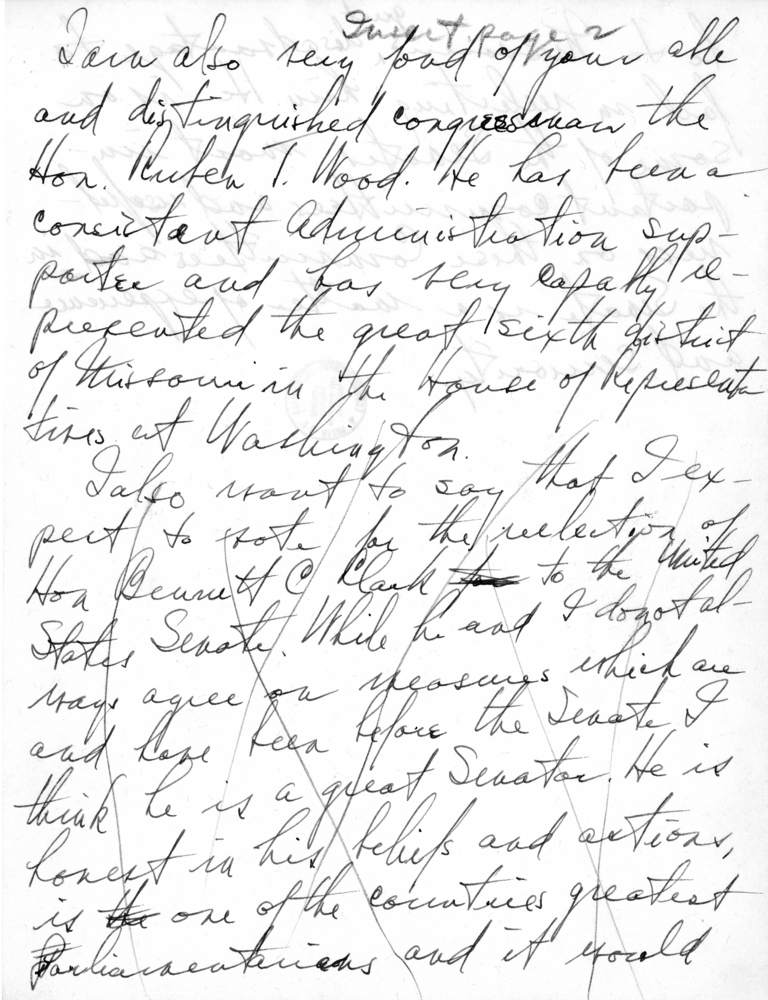 Insert page 2
I am also very fond of your able
and distinguished congressman the
Hon. Ruben T. Wood. He has been a
consistant Administration sup-
porter and has very capably re-
presented the great sixth district
of Missouri in the House of Representa
tives at Washington.
I also want to say that I ex-
pect to vote for the reelection of
Hon Bennett C Clark to the United
States Senate. While he and I do not al-
ways agree on measures which are
and have been before the Senate I
think he is a great Senator. He is
honest in his beliefs and actions,
is the one of the countries greatest
Parliamentarians and it would